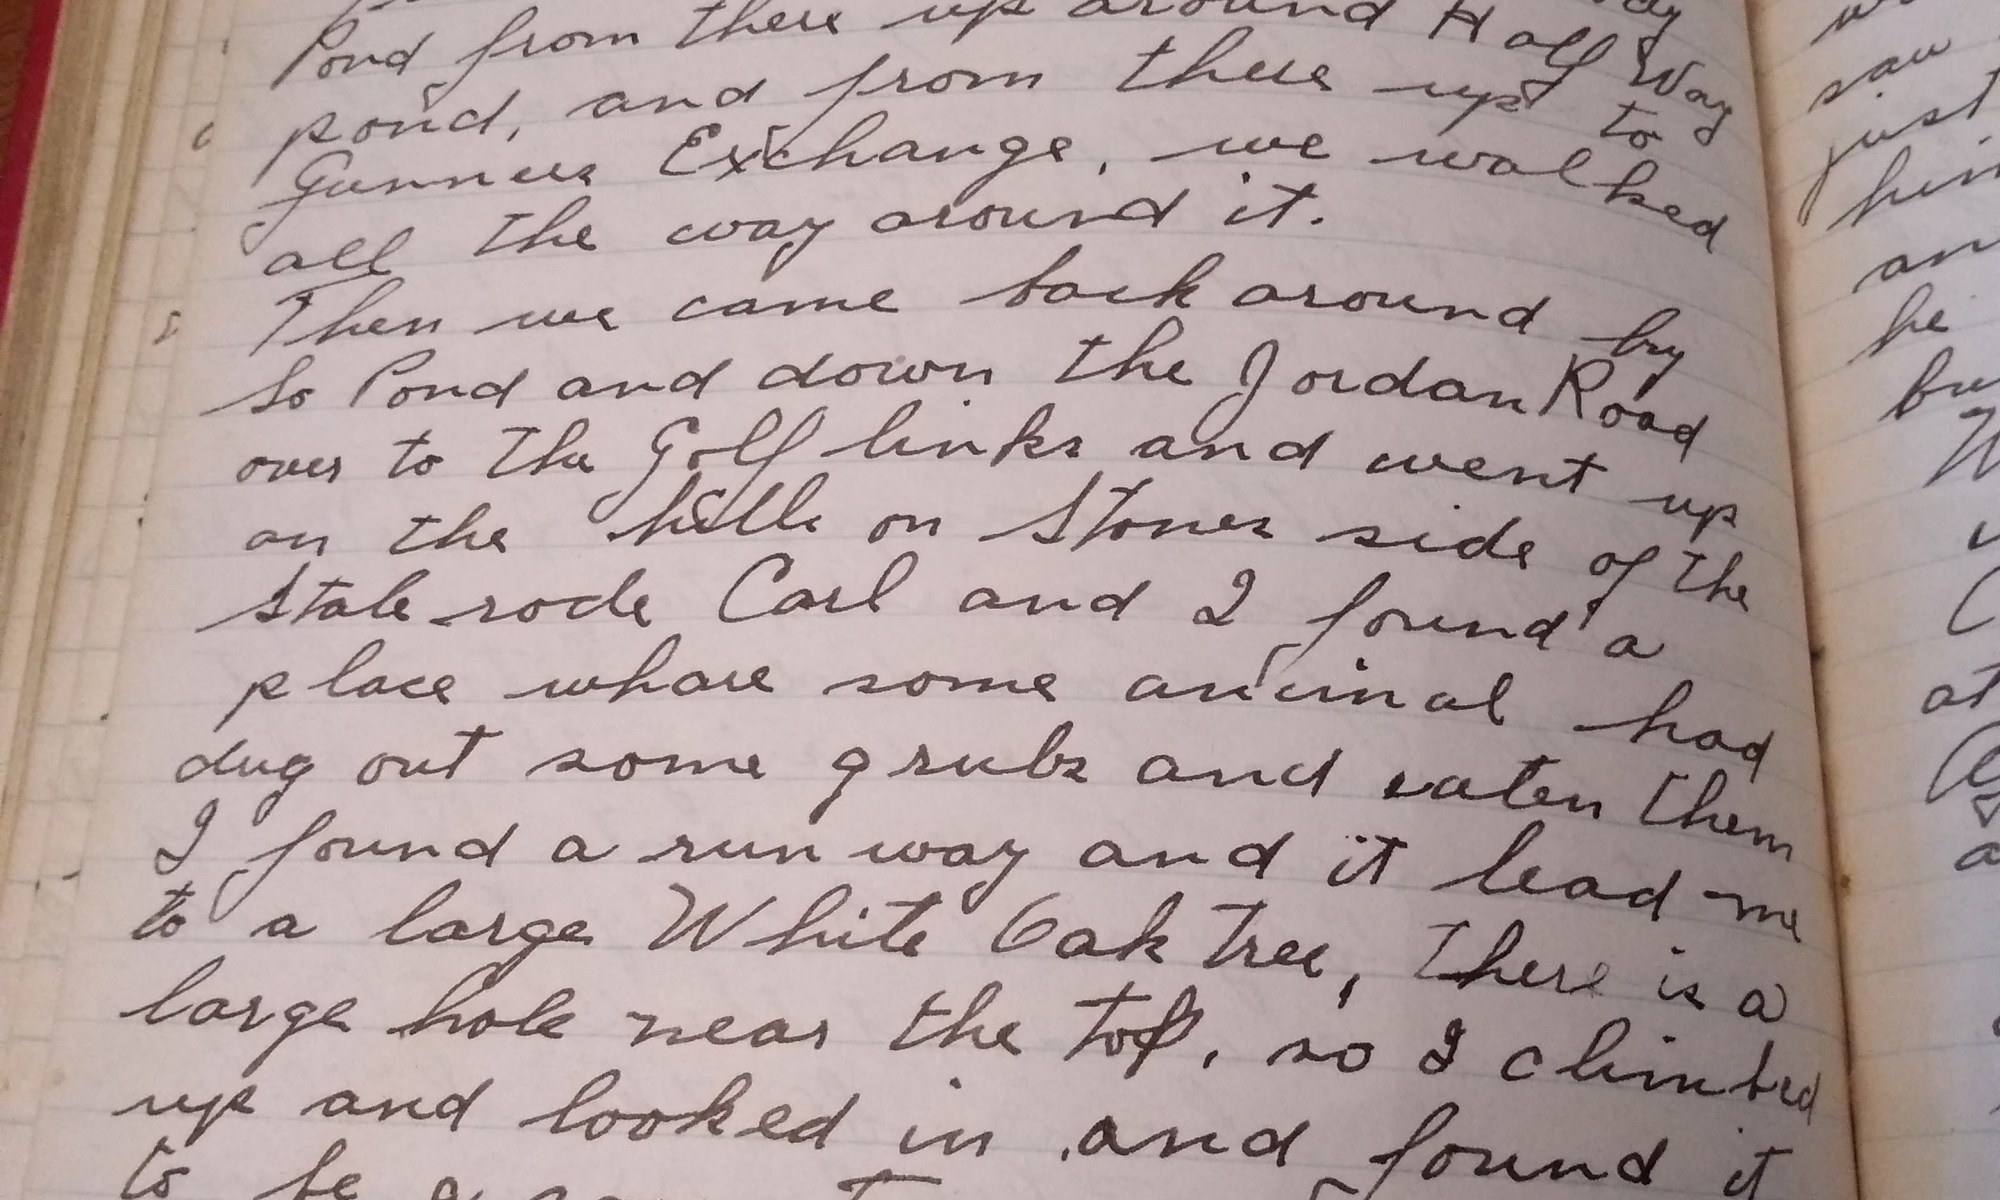 Pond from there up around Half Way
pond, and from there up to
Gunners Exchange, we walked
all the way around it.
Then we came back around by
So Pond and down the Jordan Road
over to the Golf links and went up
on the hills on Stones side of the
State rode Carl and I found a
place whare some animal had
dug out some grubs and eaten them
I found a run way and it lead me
to a large White Oak Tree, There is a
large hole near the top, so I climbed
up and looked in and found it
to be a
saw
just
he
at